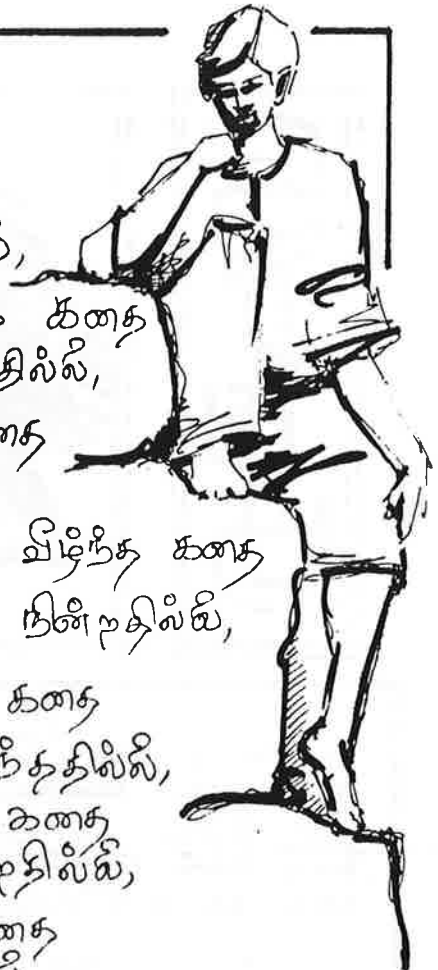 கதை
தில்லை,
தை
வீழ்ந்த கதை
நின்றதில்லை,
கதை
ந்ததில்லை,
கதை
றதில்லை,
தை